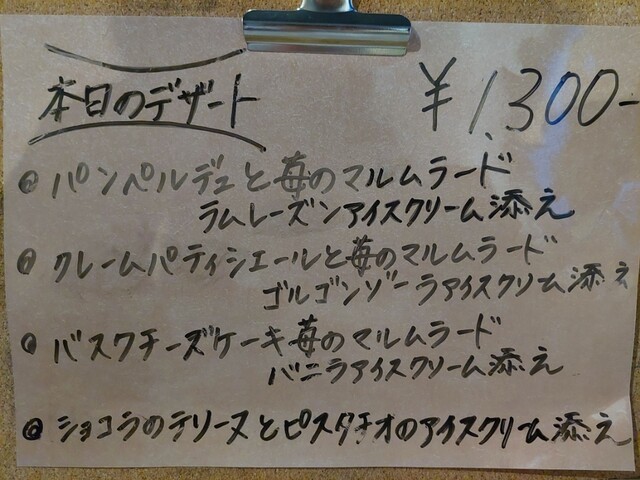 本日のデザート
¥1,300-
@ パンペルデュと苺のマルムラード
ラムレーズンアイスクリーム添え
@ クレームパティシエールと苺のマルムラード
ゴルゴンゾーラアイスクリーム添え
@ バスクチーズケーキ苺のマルムラード
バニラアイスクリーム添え
@ ショコラのテリーヌとピスタチオのアイスクリーム添え